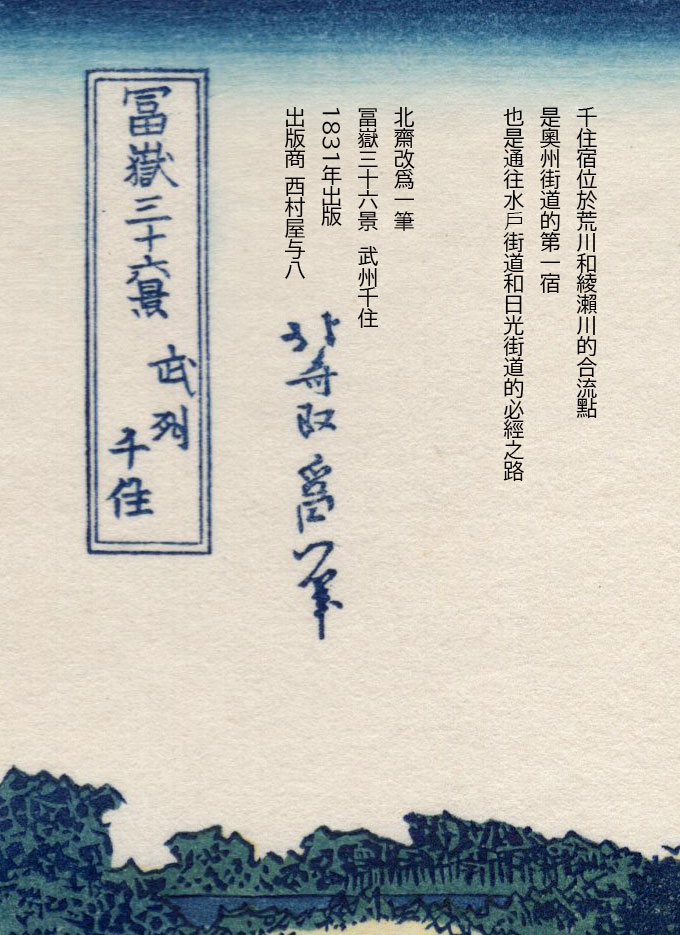 千住宿位於荒川和綾瀨川的合流點
是奧州街道的第一宿
也是通往水戶街道和日光街道的必經之路
北齋改爲一筆
冨嶽三十六景 武州千住
1831年出版
出版商 西村屋与八
北斎改爲一筆
冨嶽三十六景
武州
千住